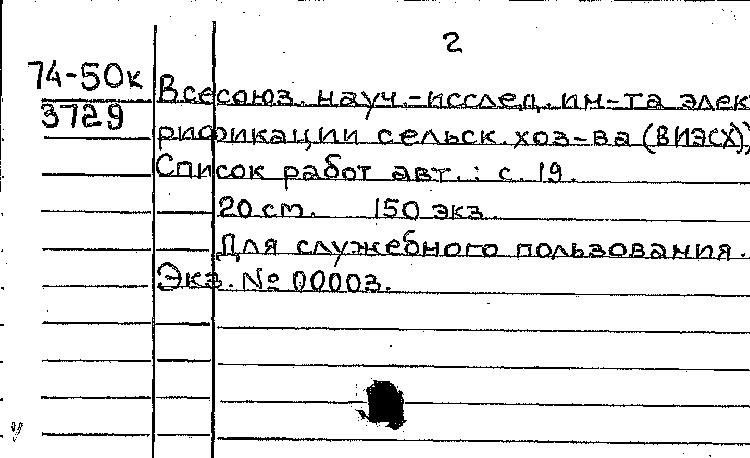 2
74-50к
3729
Всесоюз. науч.-исслед. ин-та элек
рификации сельск. хоз-ва (ВИЭСХ))
Список работ авт.: с. 19.
20 см. 150 экз.
Для служебного пользования.
Экз. № 00003.